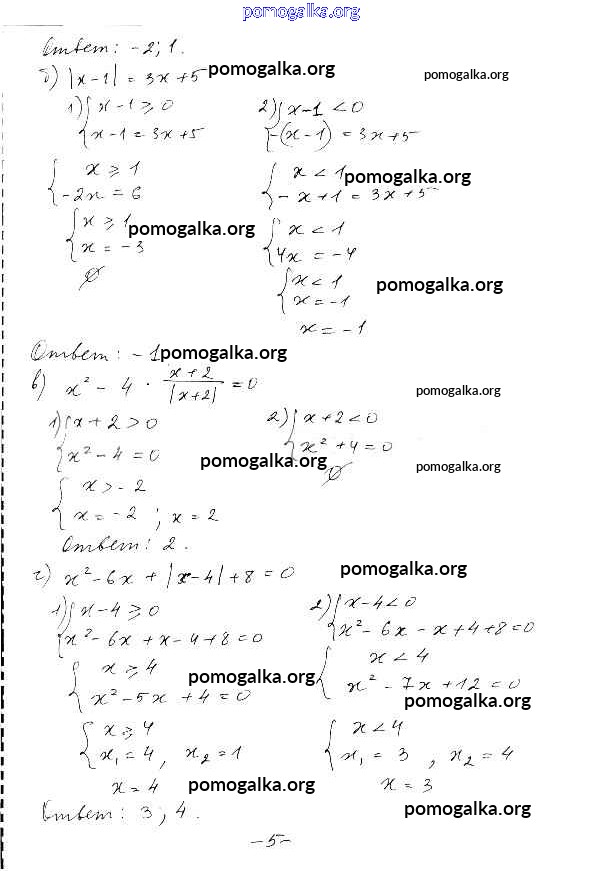 pomogalka.org
Ответ: -2; 1.
б) |x-1| = 3x+5 pomogalka.org pomogalka.org
1) { x-1 ≥ 0 2) { x-1 < 0
x-1 = 3x+5 -(x-1) = 3x+5
{ x ≥ 1 { x < 1 pomogalka.org
-2x = 6 -x+1 = 3x+5
{ x ≥ 1 pomogalka.org { x < 1
x = -3 4x = -4
∅ { x < 1 pomogalka.org
x = -1
x = -1
Ответ: -1 pomogalka.org
в) x² - 4 · (x+2)/|x+2| = 0 pomogalka.org
1) { x+2 > 0 2) { x+2 < 0
x² - 4 = 0 x² + 4 = 0
pomogalka.org ∅ pomogalka.org
{ x > -2
x = -2 ; x = 2
Ответ: 2.
г) x² - 6x + |x-4| + 8 = 0 pomogalka.org
1) { x-4 ≥ 0 2) { x-4 < 0
x² - 6x + x - 4 + 8 = 0 x² - 6x - x + 4 + 8 = 0
{ x ≥ 4 pomogalka.org { x < 4
x² - 5x + 4 = 0 x² - 7x + 12 = 0
pomogalka.org
{ x ≥ 4 { x < 4
x₁ = 4, x₂ = 1 x₁ = 3, x₂ = 4
x = 4 pomogalka.org x = 3
Ответ: 3; 4. pomogalka.org
-5-